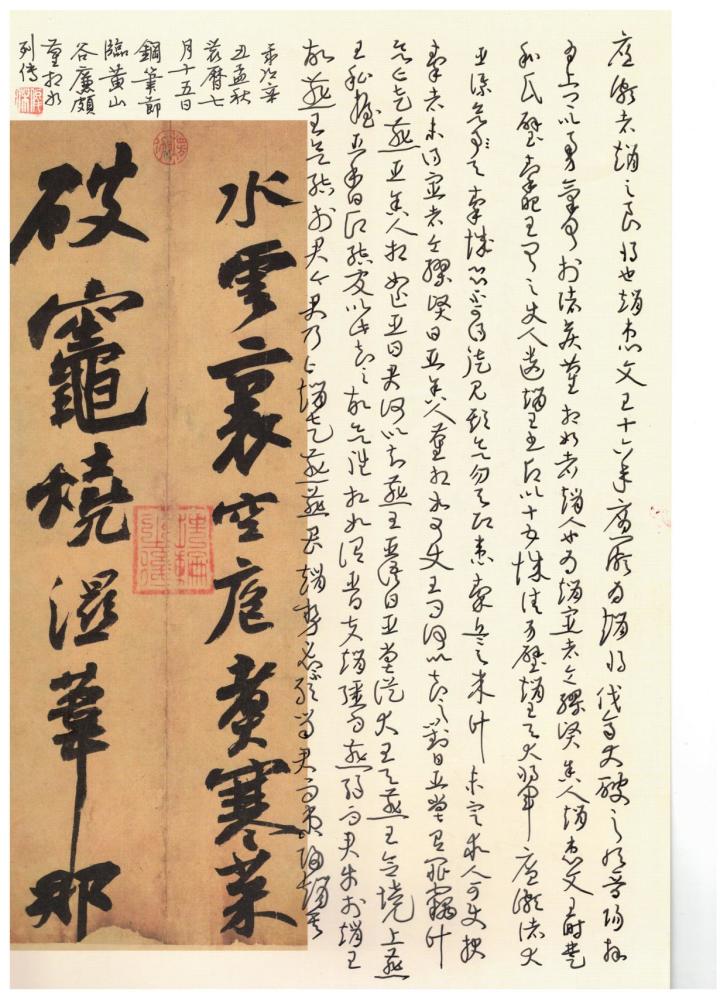 廉頗者趙之良將也趙惠文王十六年廉頗為趙將伐齊大破之取晉陽拜
為上卿以勇氣聞於諸侯藺相如者趙人也為趙宦者令繆賢舍人趙惠文王時楚
和氏璧秦昭王聞之使人遺趙王書願以十五城請易璧趙王與大將軍廉頗諸大
臣謀欲予之秦城恐不可得徒見欺欲勿予即患秦兵之來計未定求人可使報
秦者未得宦者令繆賢曰臣舍人藺相如可使王問何以知之對曰臣嘗有罪竊計
欲亡走燕臣舍人相如止臣曰君何以知燕王臣語曰臣嘗從大王與燕王會境上燕
王私握臣手曰願結友以此知之故欲往相如謂臣曰夫趙彊而燕弱而君幸於趙王
故燕王欲結於君今君乃亡趙走燕燕畏趙勢必不敢留君而束君歸趙矣
水雲裏空庖煑寒菜
破竈燒濕葦那
歲次辛
丑孟秋
農曆七
月十五日
鋼筆節
臨黃山
谷廉頗
藺相如
列傳